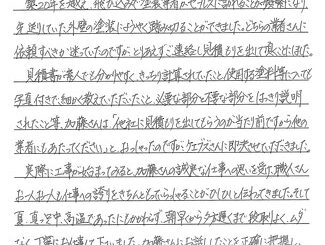 築20年を越え、飛び込みで塗装業者がセールスに訪れることが頻繁になり
先送りしていた外壁の塗装にようやく踏み切ることができました。どちらの業者さんに
依頼すべきか迷っていたのですが、とりあえずご連絡し見積もりを出して頂くに
見積書が素人でも分かりやすく、きっちり計算されていたこと、使用する塗料等についても
写真付きで細かく教えていただいたこと、必要な部分と不要な部分をはっきり説明
されたこと等、加藤さんは「他社に見積もりを出してもらうのが当たり前ですから他の
業者にもあたってください。」とおっしゃったのですが、クエフさんに即決させていただきました。
実際に工事が始まってみると、加藤さんの誠実な仕事への思いを受け、職人さん
お一人お一人も仕事への誇りをきちんともっていらっしゃることがひしひしと伝わってきました。そして
夏、真っ只中、高温であったにもかかわらず、朝早くから夕方遅くまで段取りよく、ムダ
なく丁寧にお仕事して下さいました。加藤さんにお話ししたことを正確に把握し、